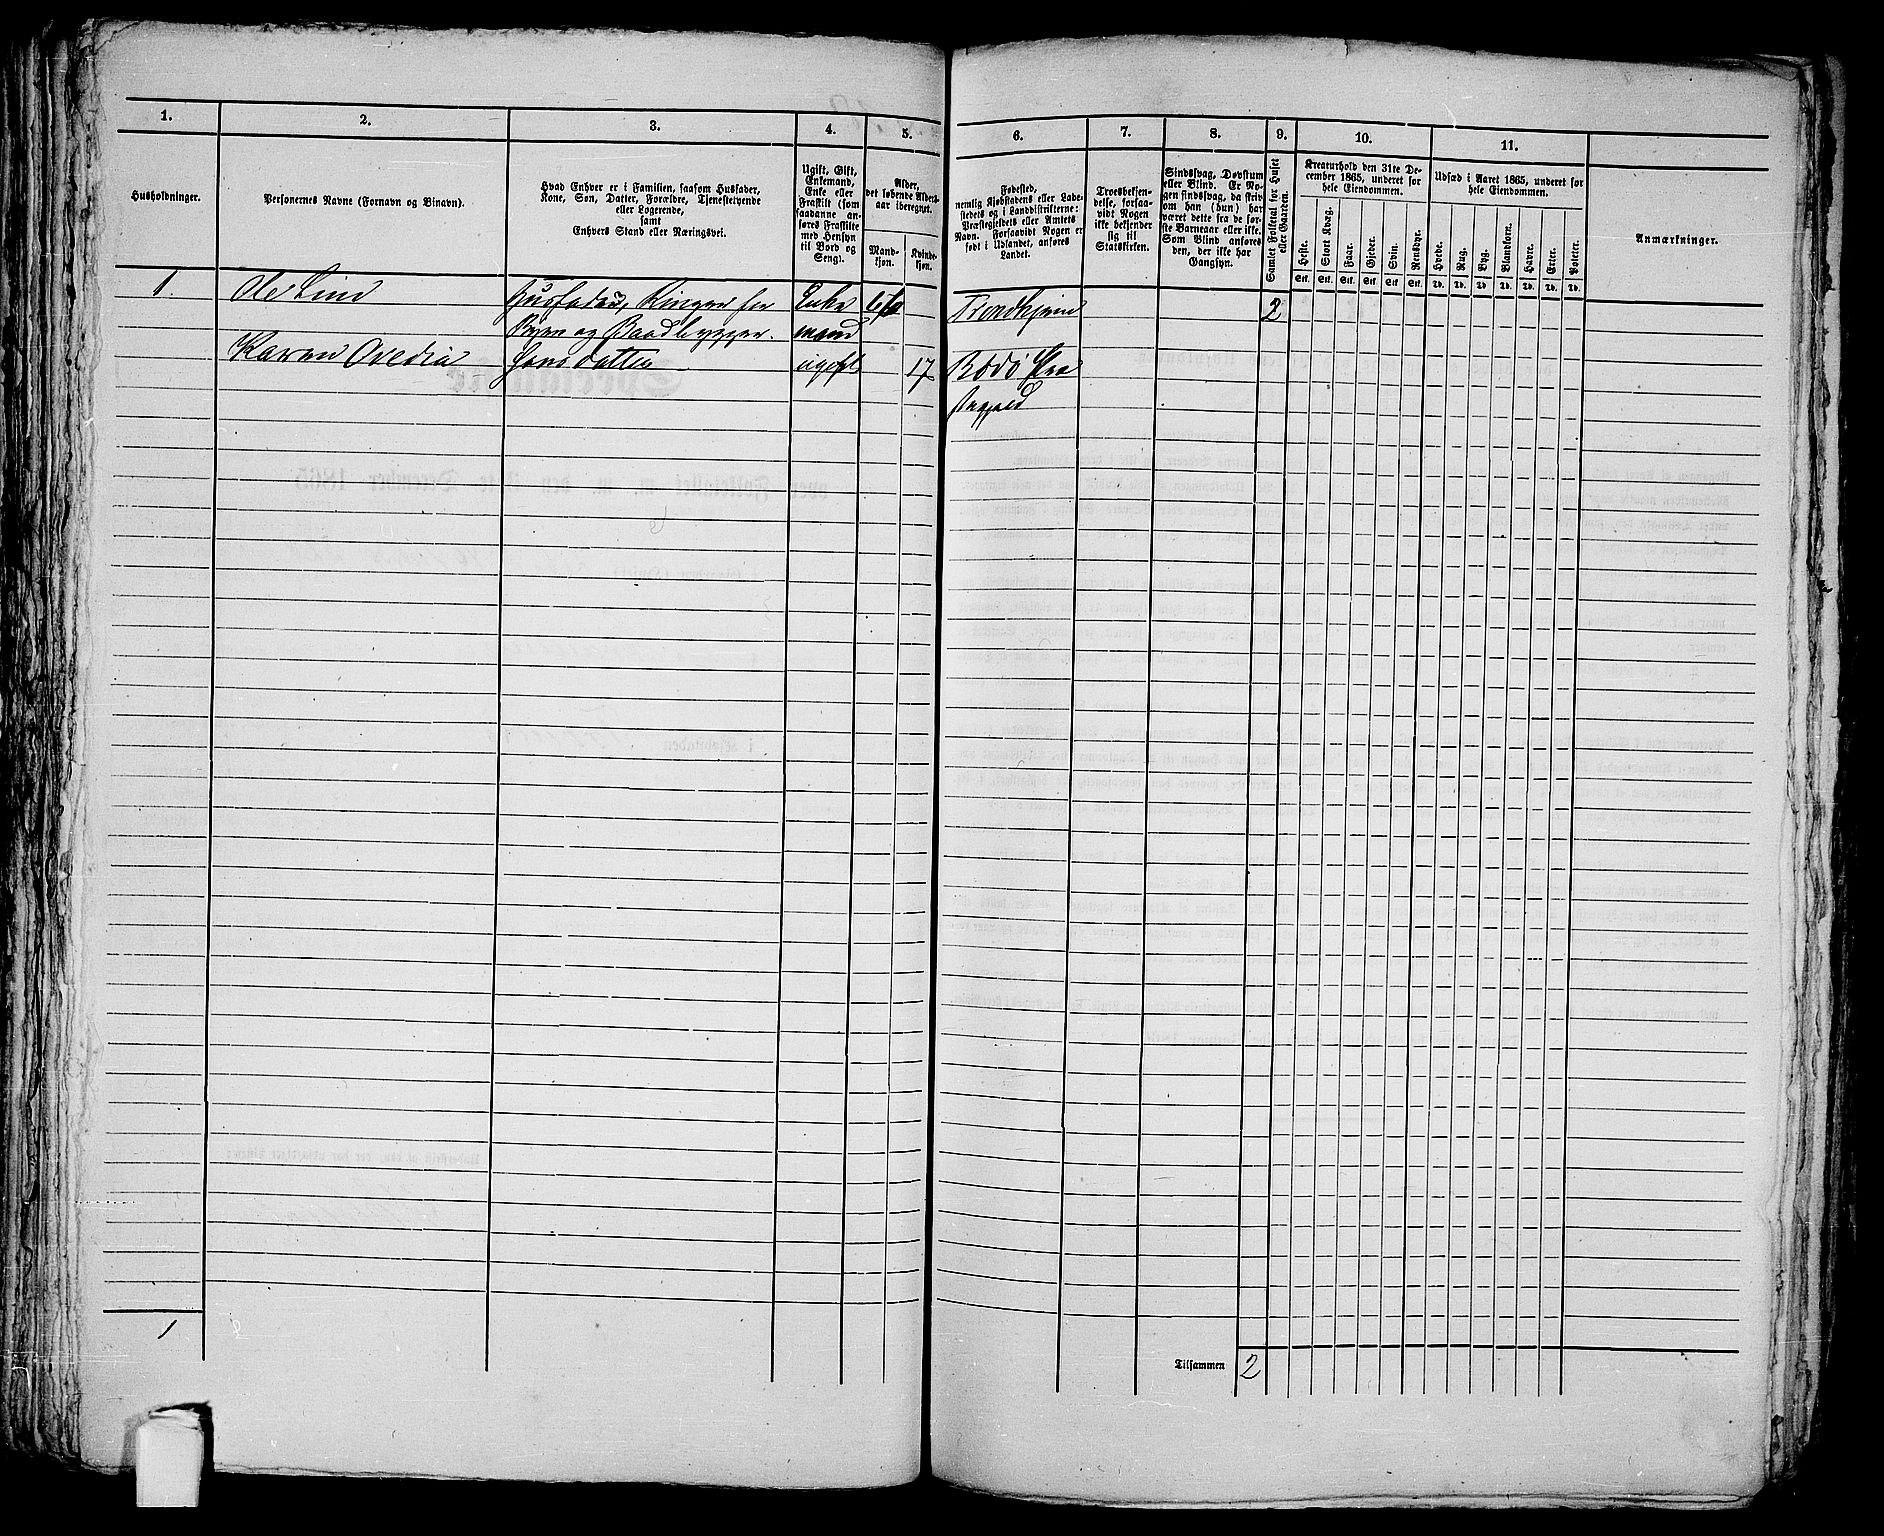 1. 2. 3. 4. 5. 6. 7. 8. 9. 10. 11.
Husholdninger.
Personernes Navne (Fornavn og Binavn).
Hvad Enhver er i Familien, saasom Husfader,
Kone, Søn, Datter, Forældre, Tjenestetyende
eller Logerende,
samt
Enhvers Stand eller Næringsvei.
Ugift, Gift,
Enkemand,
Enke eller
Fraskilt (som
saadanne an-
føres Fraskilte
med Hensyn
til Bord og
Seng).
Alder,
det løbende Alders-
aar iberegnet.
Mand-
kjøn.
Kvinde-
kjøn.
Fødested,
nemlig Kjøbstadens eller Lade-
stedets og i Landdistrikterne:
Præstegjeldets eller Amtets
Navn. Forsaavidt Nogen er
født i Udlandet, anføres
Landet.
Troesbekjen-
delse, forsaa-
vidt Nogen
ikke bekjender
sig til
Statskirken.
Sindssvag, Døvstum
eller Blind. Er No-
gen sindssvag, da skriv
om han (hun) har
været dette fra de før-
ste Barneaar eller ikke.
Som Blind anføres
den, der ikke har
Gangsyn.
Samlet Folketal for Huset
eller Gaarden.
Kreaturhold den 31te De-
cember 1865, underet for
hele Eiendommen.
Heste. Stort Kvæg. Faar. Gjeder. Svin. Rensdyr.
Stk. Stk. Stk. Stk. Stk. Stk.
Udsæd i Aaret 1865, underet for
hele Eiendommen.
Hvede. Rug. Byg. Blandkorn. Havre. Erter. Poteter.
Td. Td. Td. Td. Td. Td. Td.
Anmærkninger.
1. Ole Lind Husfader, Ringer for Enke Trondhjem 2
Byen og Baadbygger. mand
Karen Ovedia Hans datter ugift 17 Bodø Præ
stegjeld
1
Tilsammen 2